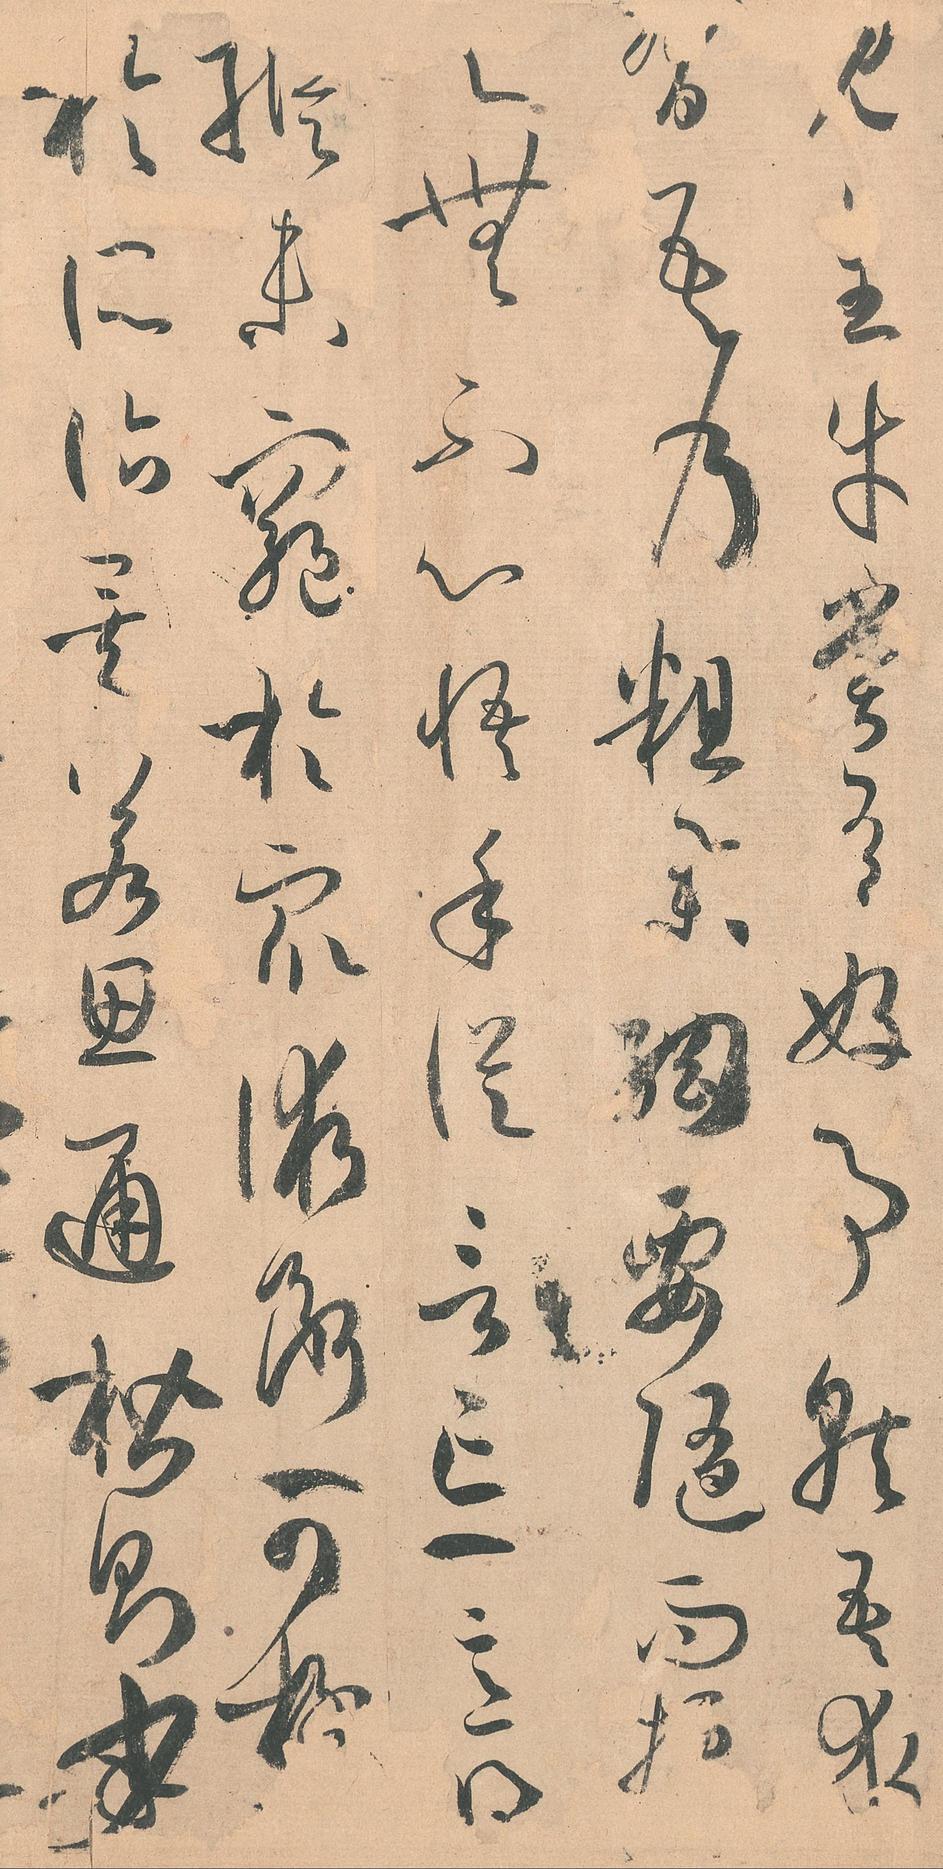 見全牛嘗有好事就吾求
習吾乃粗舉綱要隨而授
之無不心悟手從言忘意得
縱未窮於眾術斷可極
於所詣矣若思通楷則少